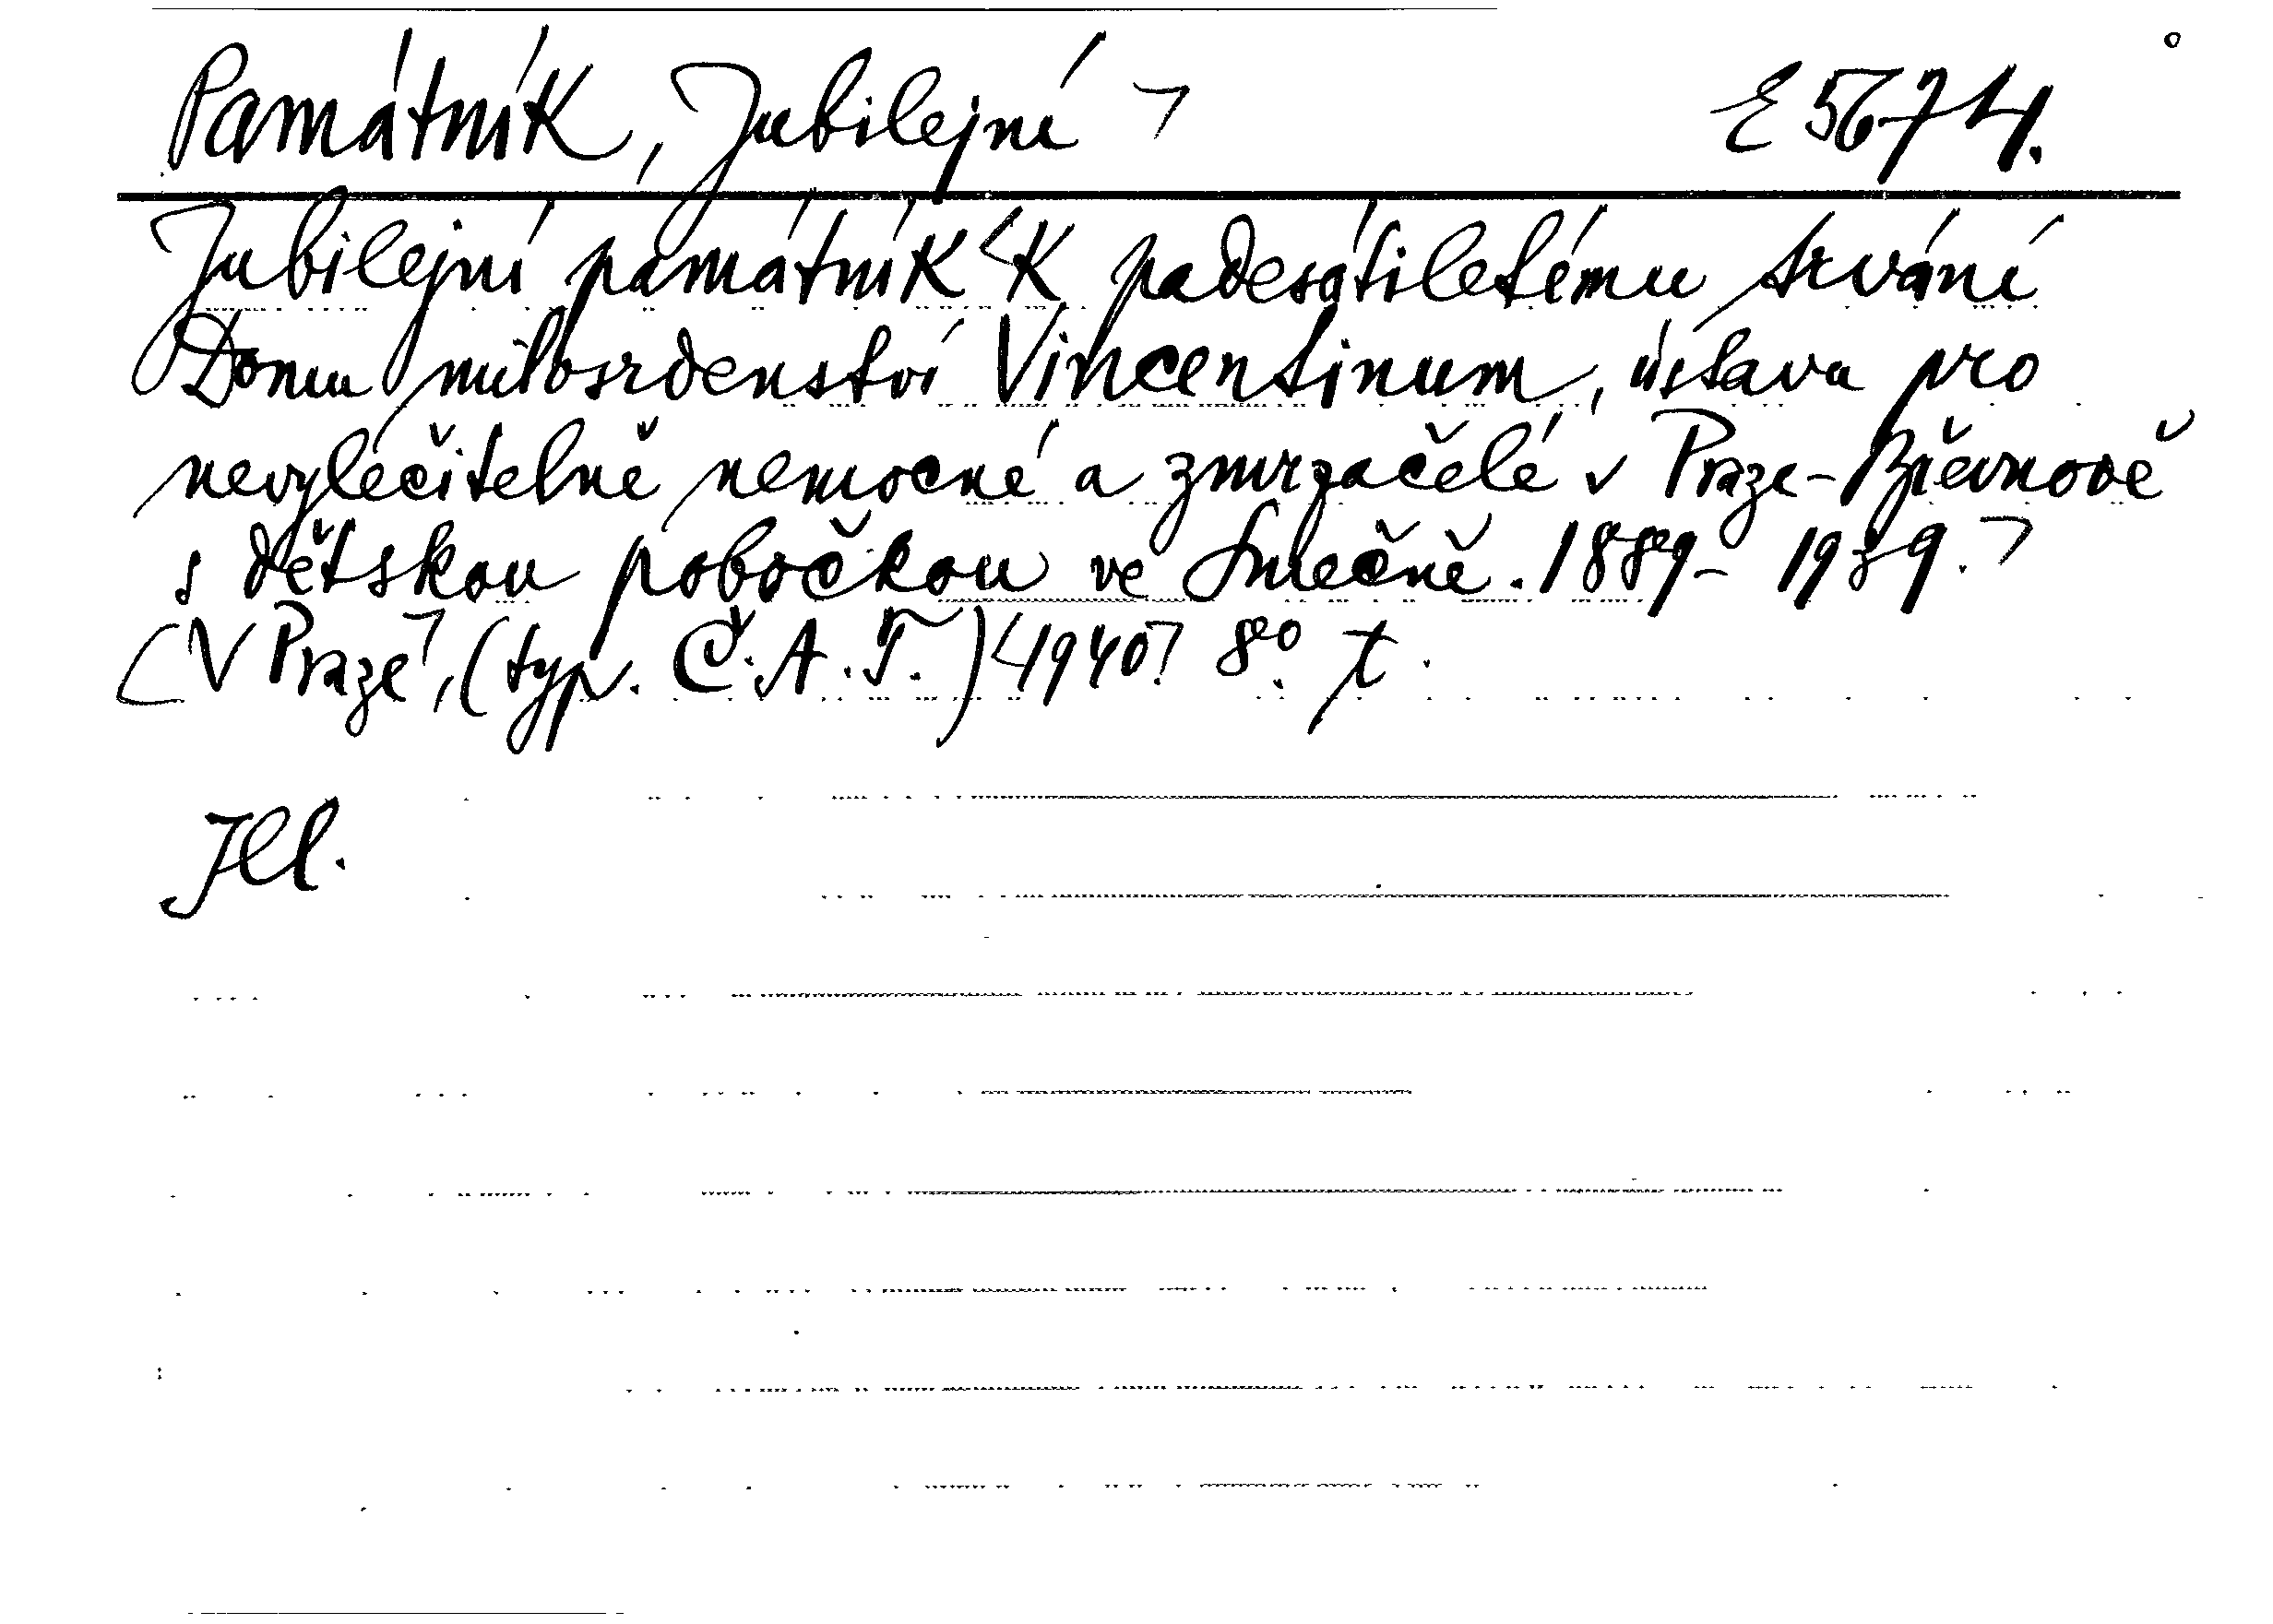 Památník, Jubilejní ¬ E 5674.
Jubilejní památník <K padesátiletému trvání
Domu milosrdenství Vincentinum, ústavu pro
nevyléčitelně nemocné a zmrzačelé v Praze-Břevnově
s dětskou pobočkou ve Smečně. 1889-1939.¬
[V Praze¬, (typ. Č.A.T.) <1940¬. 8°. t.
Ill.